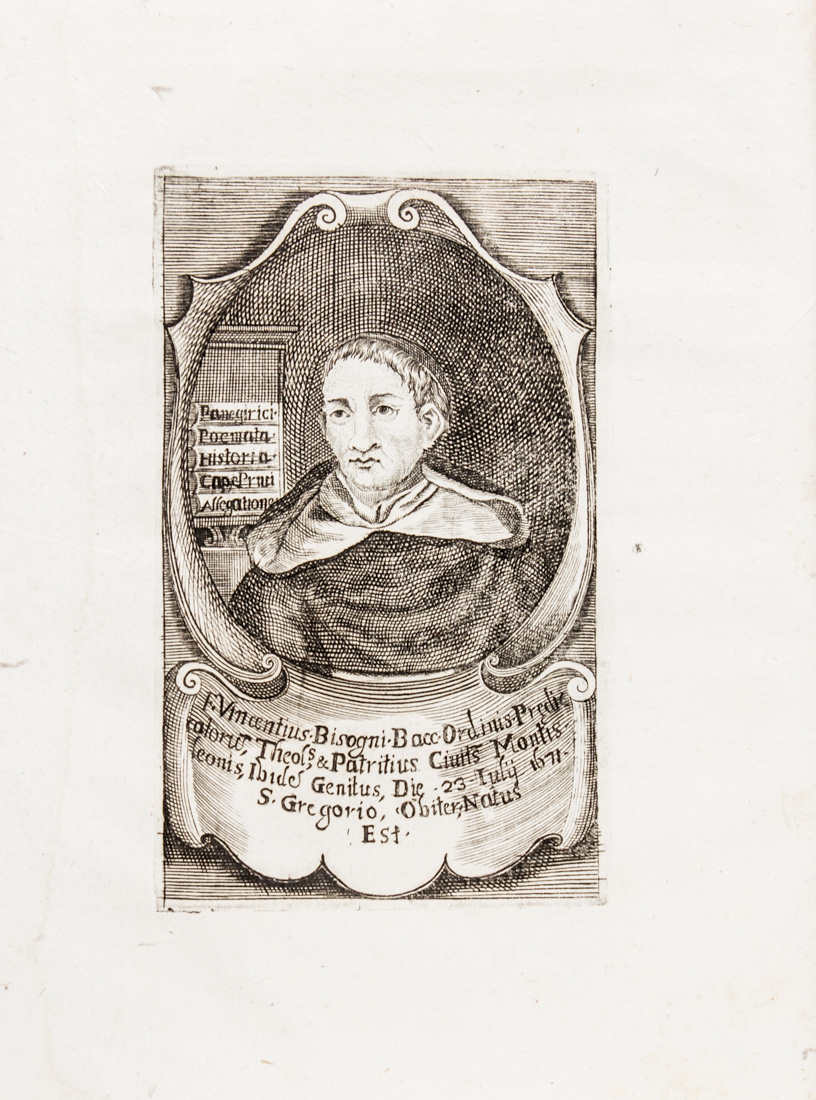 Panegirici·
Poemata·
Historia·
Cape Primi
Assegatione
F. Vincentius·Bisogni·Bacc·Ordinis·Predic
atorũ, Theolˢ, & Patritius Ciuitˢ Montis·
Leonis, Ibidẽ Genitus, Die ·23·Iulÿ 1671·
S· Gregorio, Obiter, Natus
Est·